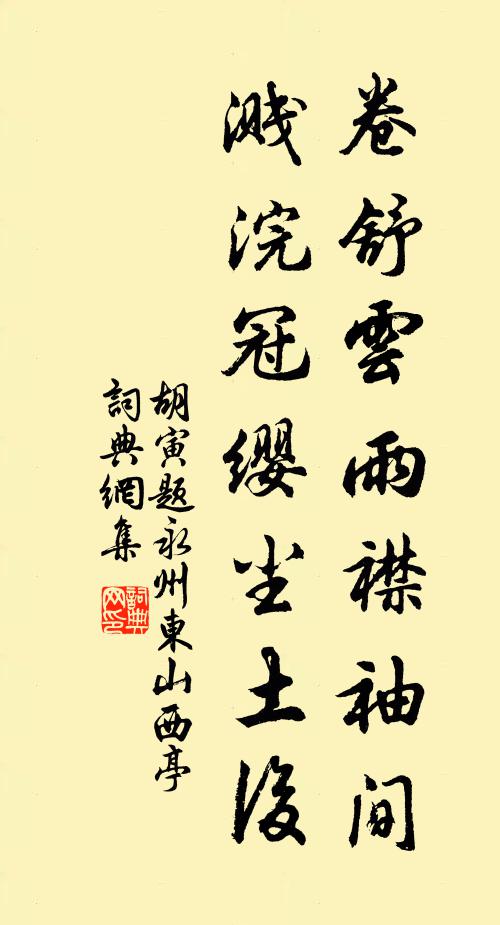 卷舒雲雨襟袖间
溅浣冠缨尘土後
胡寅题永州東山西亭
詞典網集
詞典网印